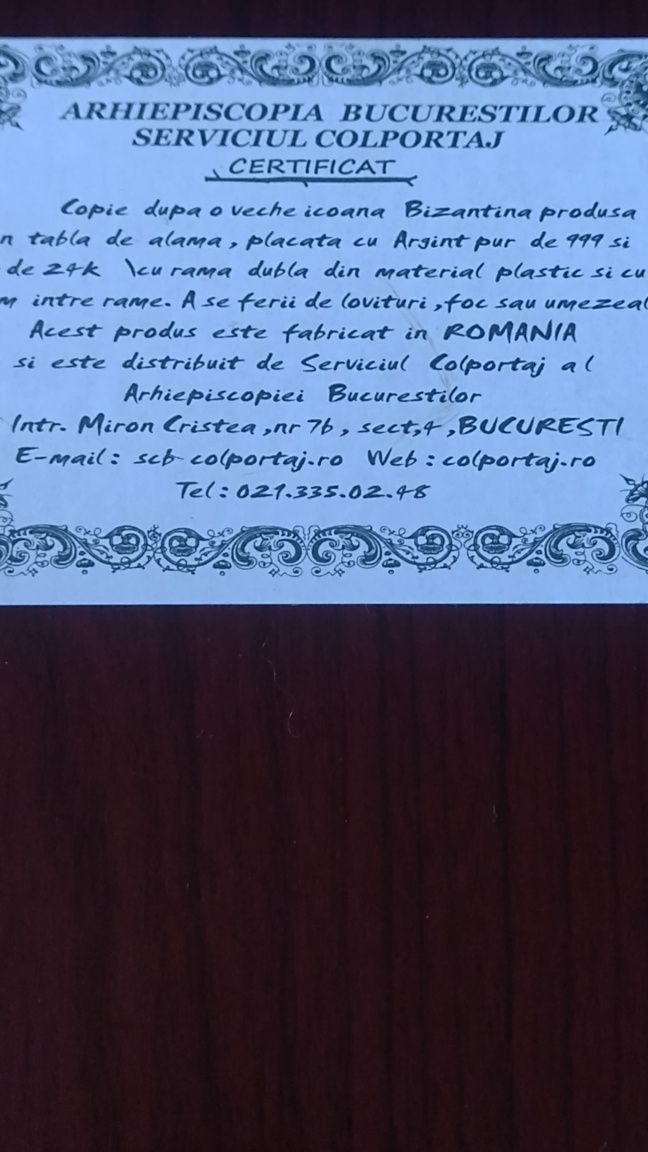 ARHIEPISCOPIA BUCURESTILOR
SERVICIUL COLPORTAJ
CERTIFICAT
Copie dupa o veche icoana Bizantina produsa
n tabla de alama, placata cu Argint pur de 999 si
de 24k \cu rama dubla din material plastic si cu
m intre rame. A se ferii de lovituri, foc sau umezeal
Acest produs este fabricat in ROMANIA
si este distribuit de Serviciul Colportaj al
Arhiepiscopiei Bucurestilor
Intr. Miron Cristea, nr 7b, sect,4, BUCURESTI
E-mail: scb colportaj.ro Web: colportaj.ro
Tel: 021.335.02.48